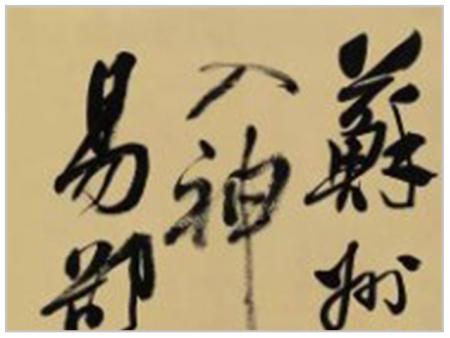 蘇州
入神
易